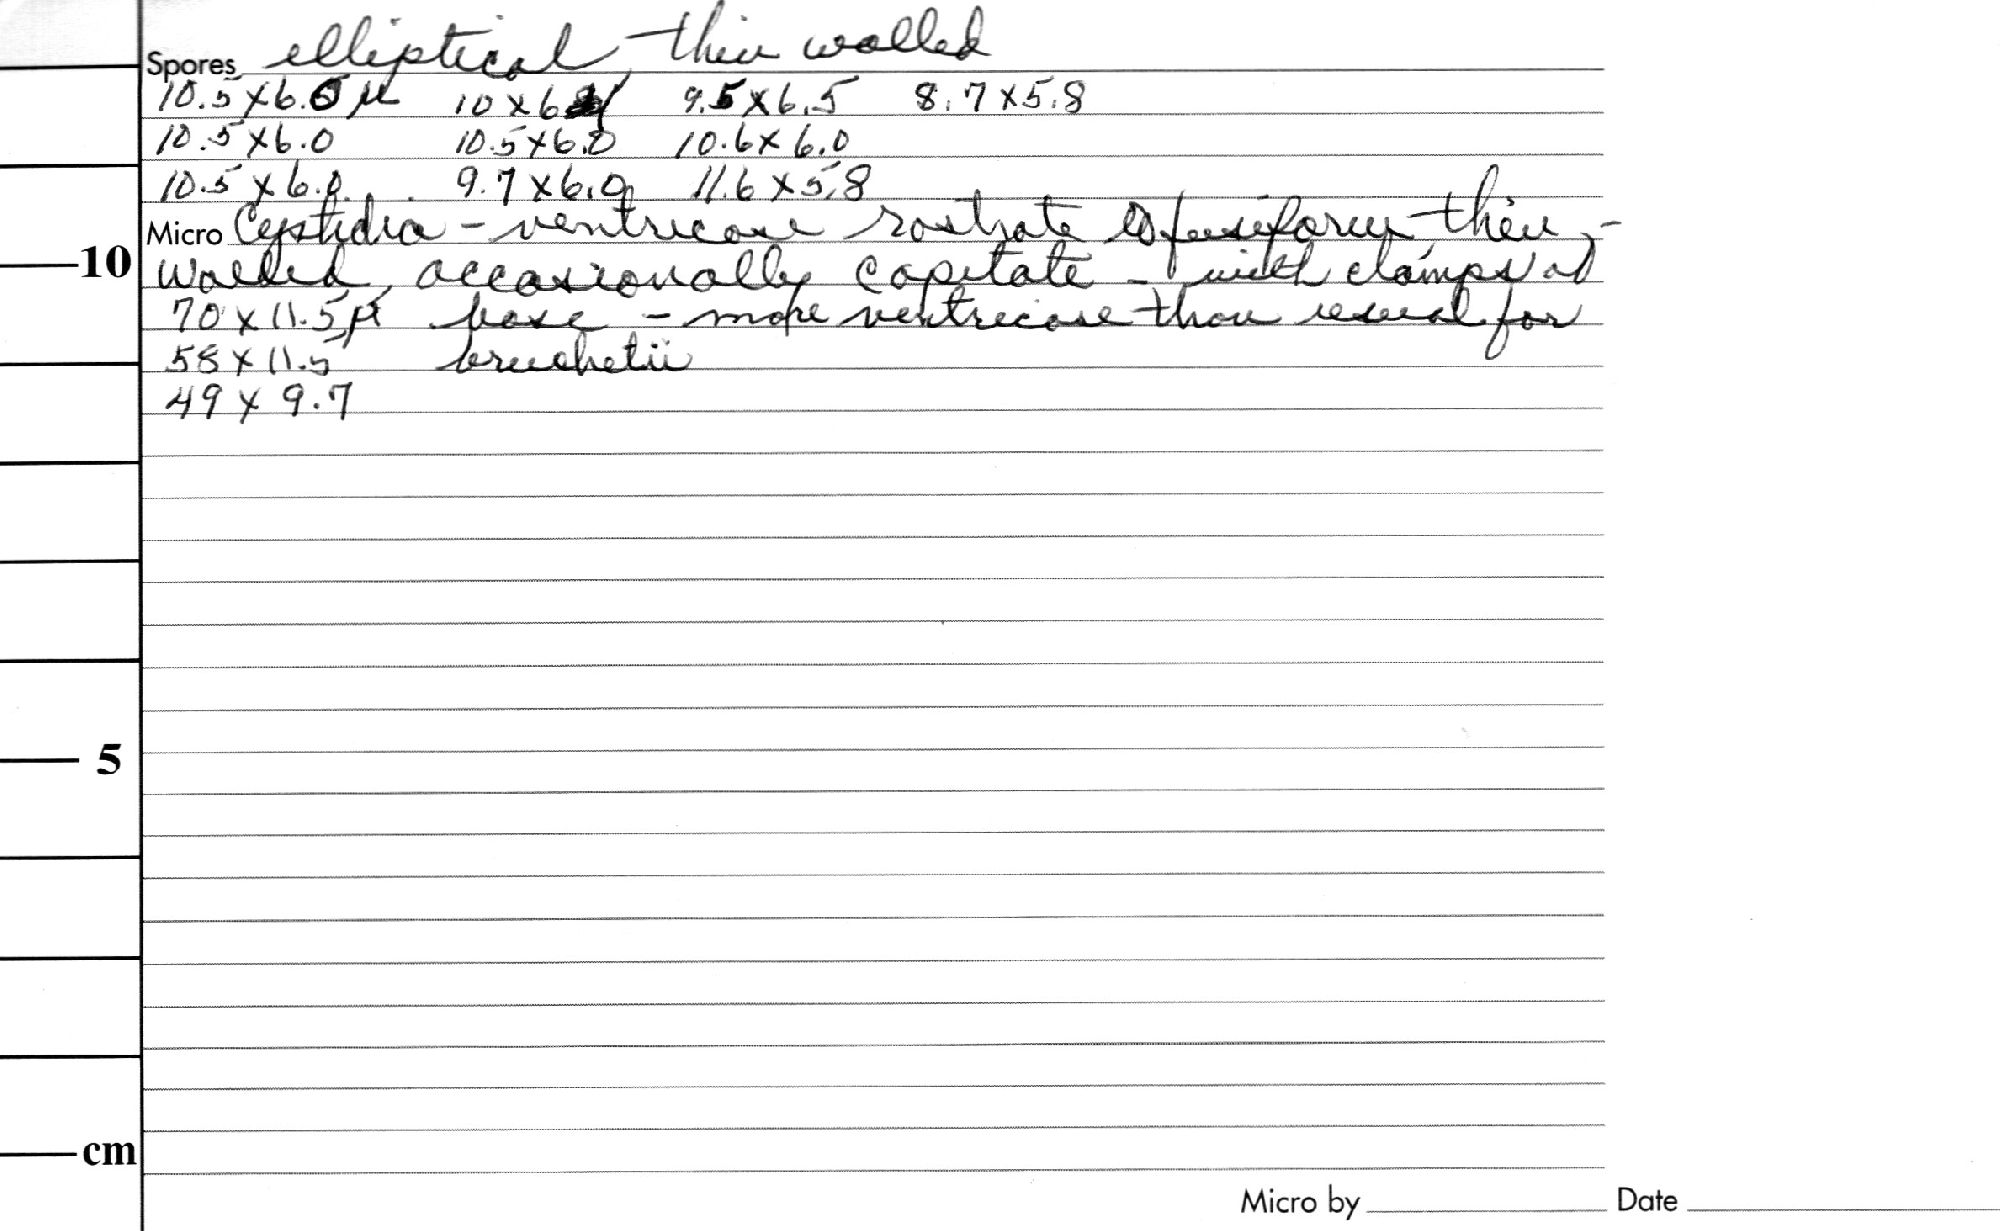 Spores elliptical, thin walled
10.5 x 6.5 µ 10 x 6 9.5 x 6.5 8.7 x 5.8
10.5 x 6.0 10.5 x 6.0 10.6 x 6.0
10.5 x 6.0 9.7 x 6.0 11.6 x 5.8
Micro Cystidia - ventricose rostrate fusiform thin-
10 walled, occasionally capitate - with clamps at
70 x 11.5 µ base - more ventricose than usual for
58 x 11.5 bruchetii
49 x 9.7
5
cm
Micro by Date